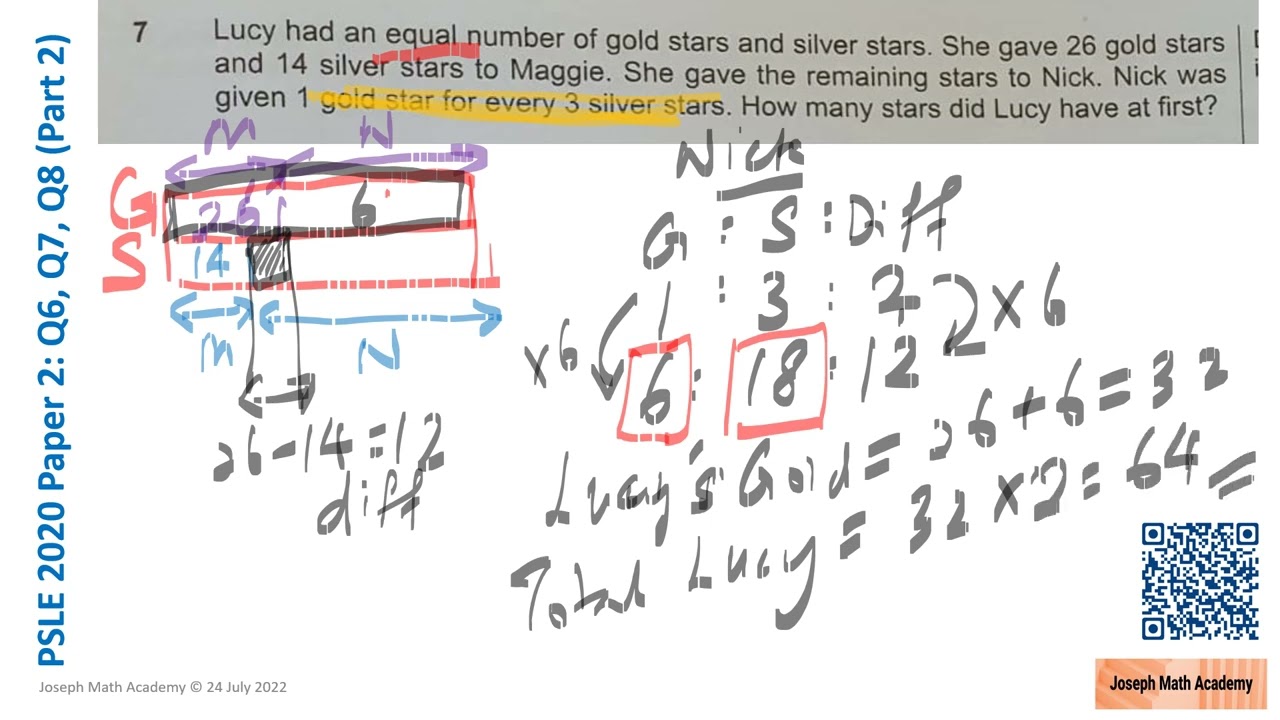 PSLE 2020 Paper 2: Q6, Q7, Q8 (Part 2)
7 Lucy had an equal number of gold stars and silver stars. She gave 26 gold stars
and 14 silver stars to Maggie. She gave the remaining stars to Nick. Nick was
given 1 gold star for every 3 silver stars. How many stars did Lucy have at first?
M N
G 26 6
S 14
M N
26-14=12
diff
Nick
G : S : Diff
1 : 3 : 2
×6 ×6
6 : 18 : 12
Lucy's Gold = 26+6=32
Total Lucy = 32×2=64
Joseph Math Academy © 24 July 2022
Joseph Math Academy